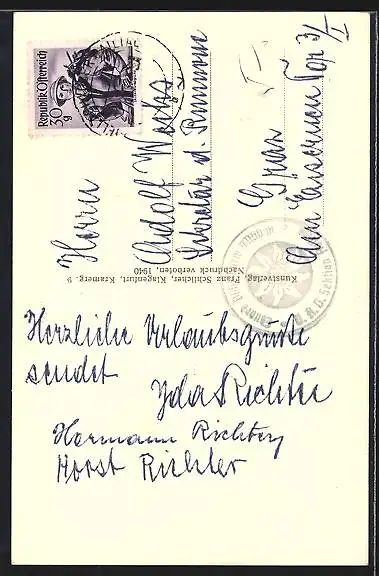 Republik Österreich
30 g
Herrn
Adolf Woks
Sekretär d.
Graz
Am Eisernen Tor 3/I
Kunstverlag, Franz Schlicher, Klagenfurt, Kramerg. 9
Nachdruck verboten, 1940
Ö. A. V. Sektion
Herzliche Urlaubsgrüße
sendet
Yda Richter
Hermann Richter
Horst Richter